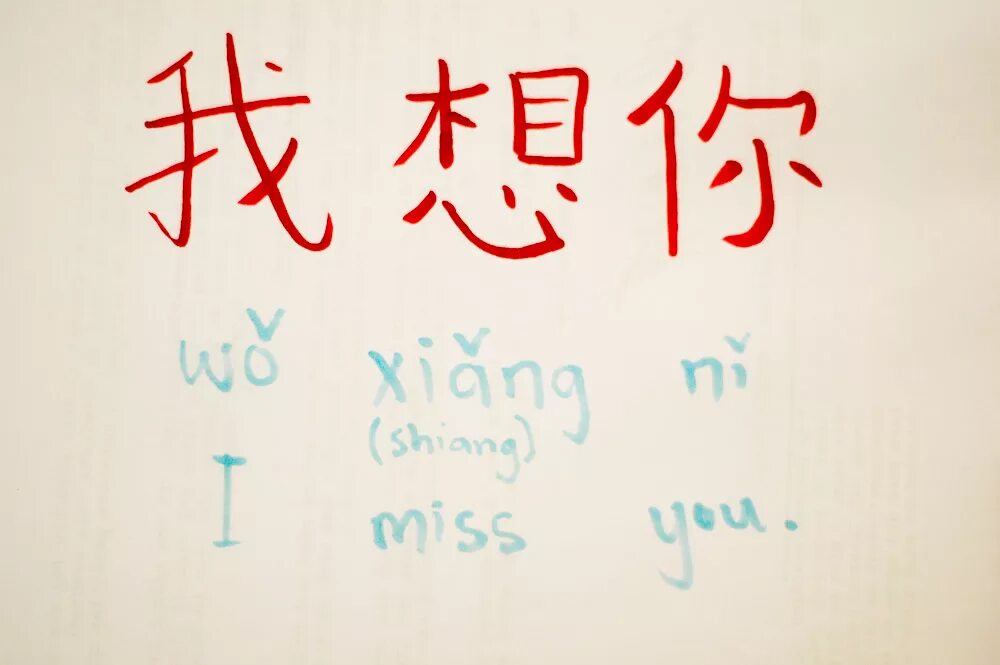 我想你
wǒ xiǎng nǐ
(shiang)
I miss you.